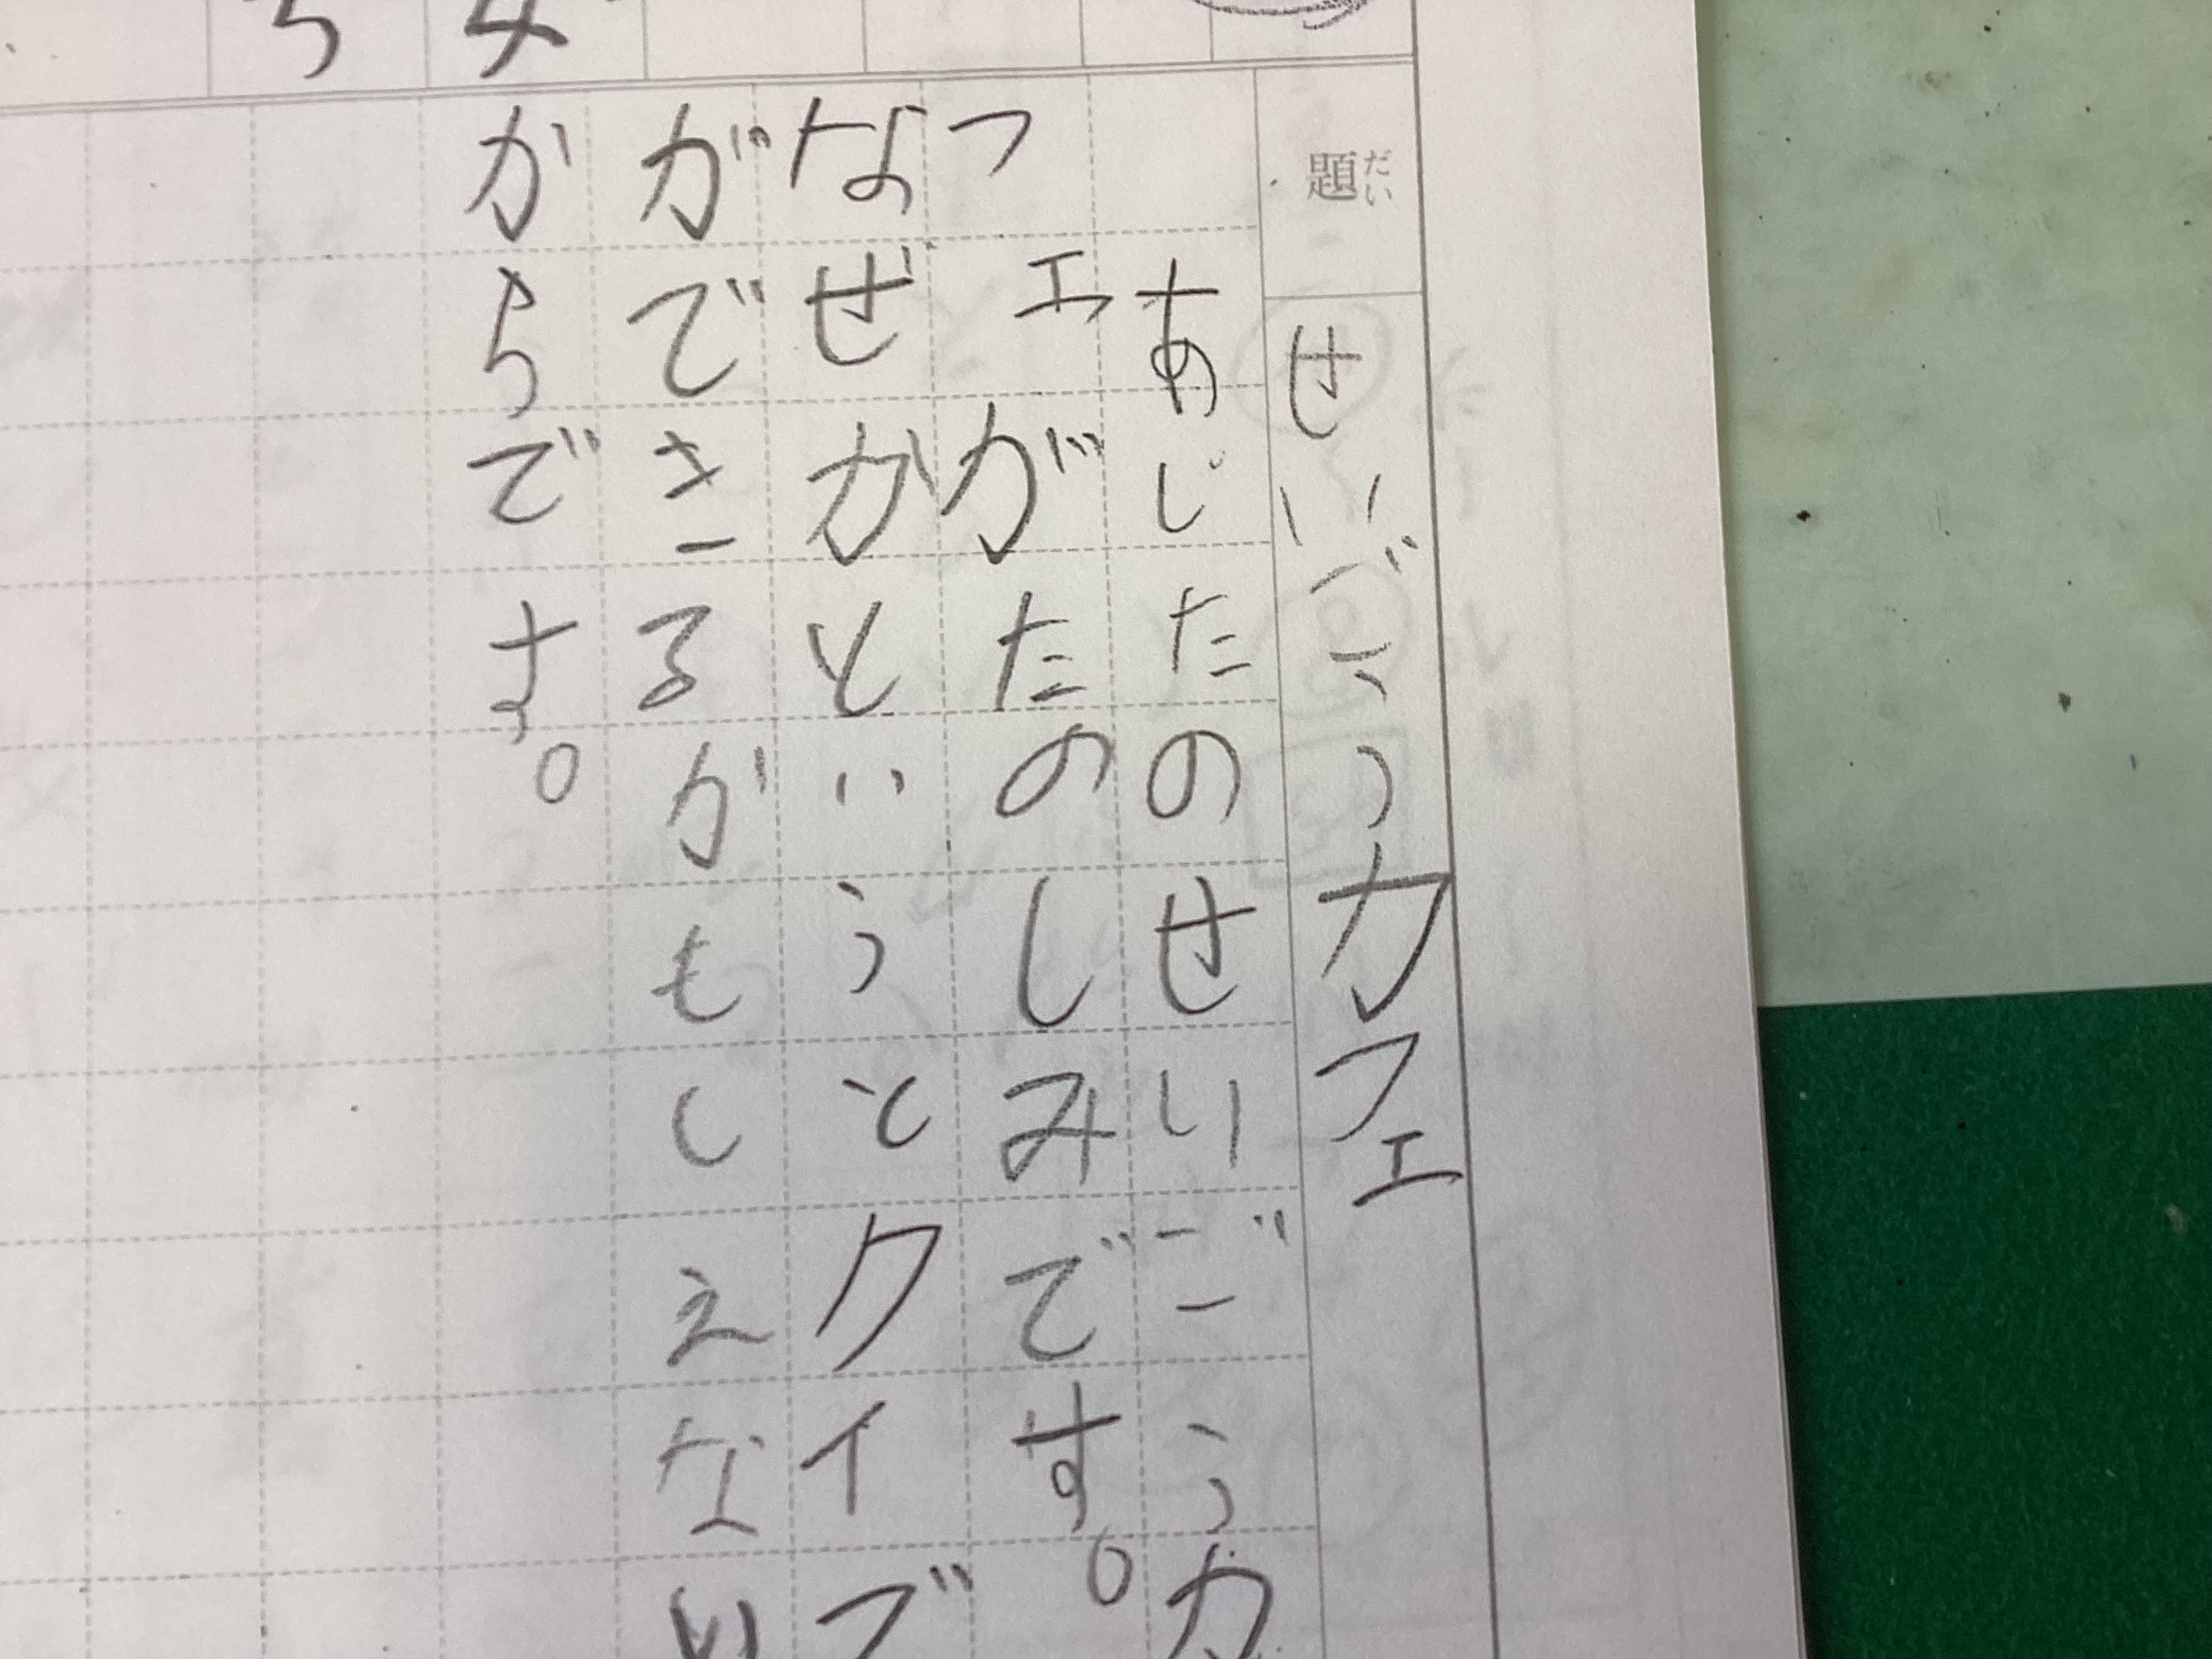 題 せいごうカフェ
だい
あしたのせいごうカ
フェがたのしみです。
なぜかというとクイズ
ができるかもしえない
からです。